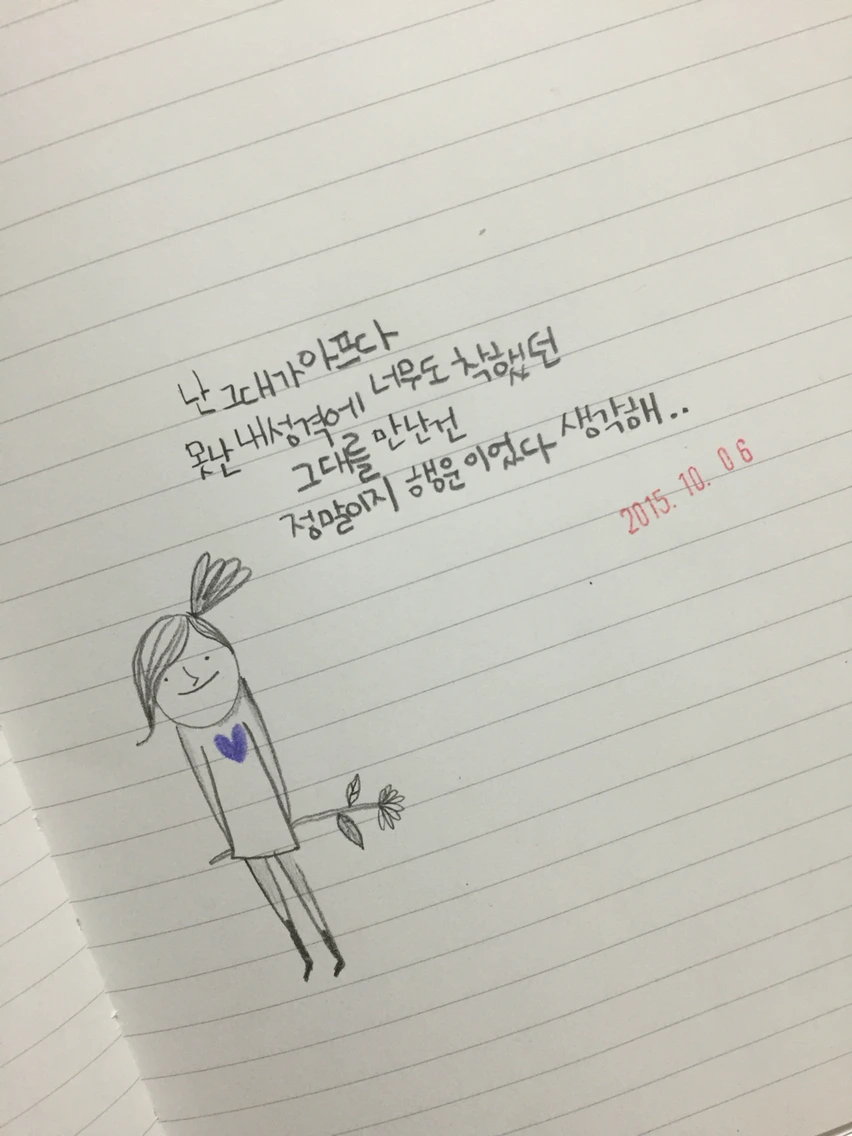 난 그대가 아프다
못난 내성격에 너무도 착했던
그대를 만난건
정말이지 행운이었다 생각해..
2015. 10. 06